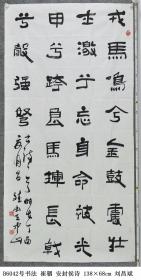 戎馬鳴兮金鼓震壮
士激兮忘身命被光
甲兮跨良馬揮長戟
兮彀强弩
B6042号书法 崔駰 安封侯诗 138×68cm 刘昌斌